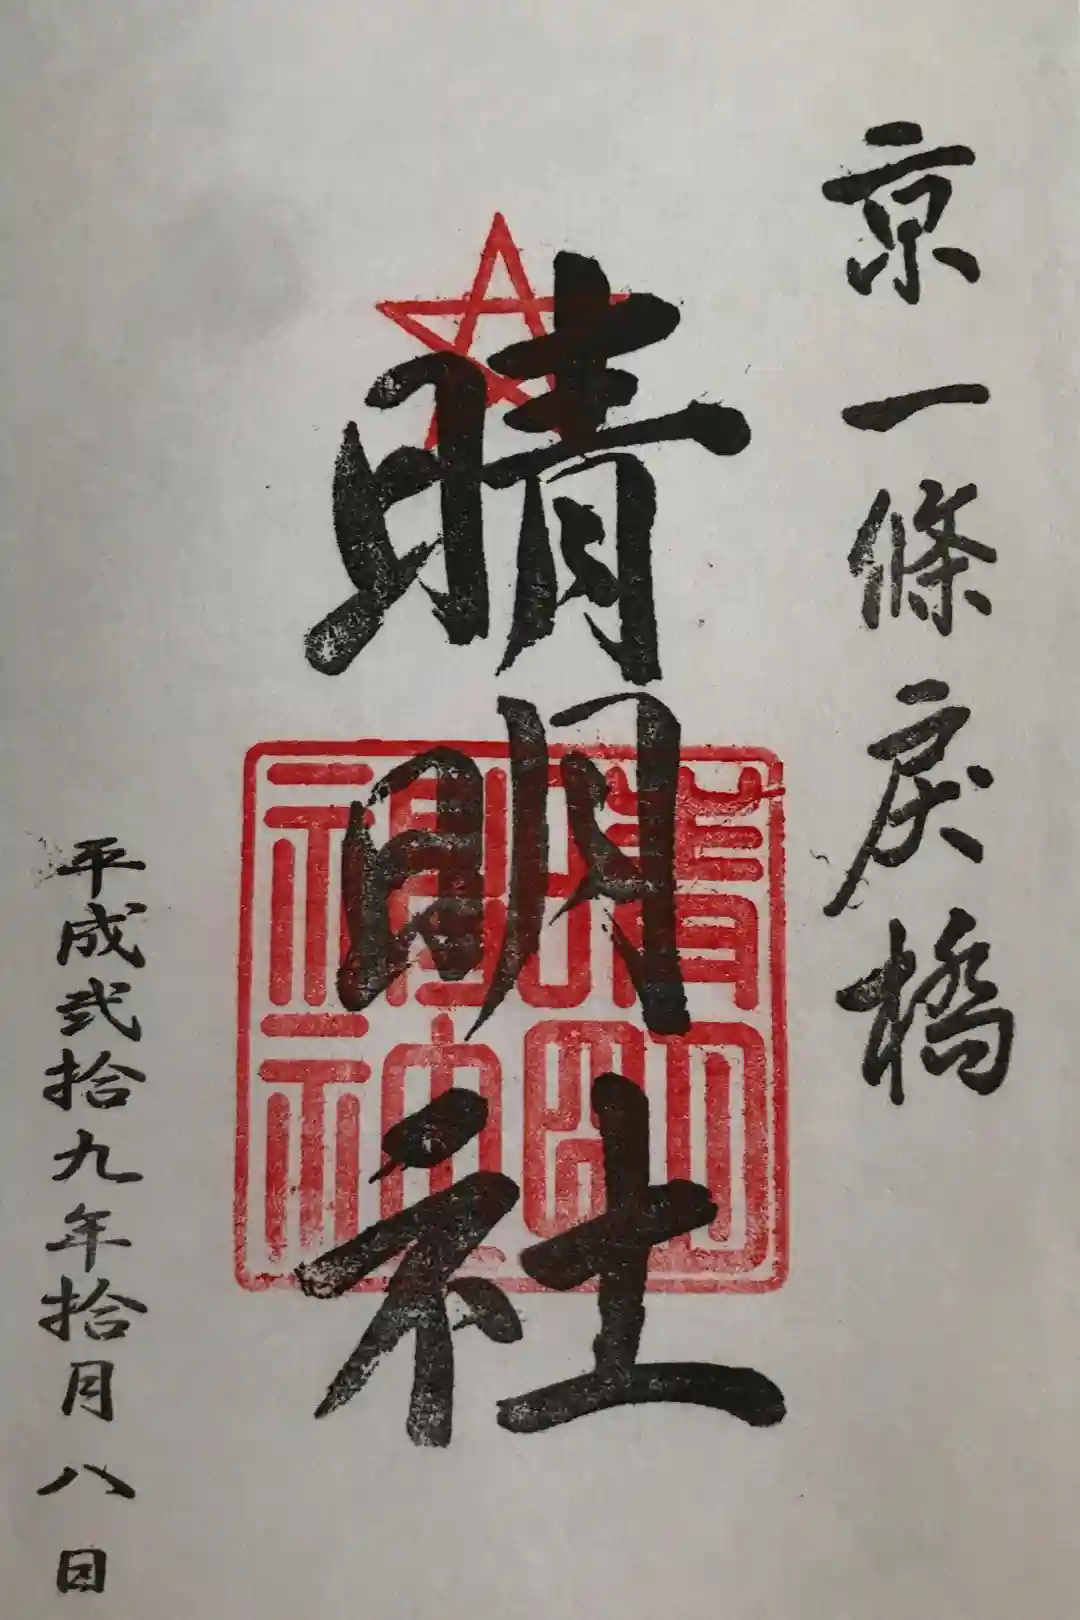 京一條戻橋
晴明社
晴明神社
平成弐拾九年拾月八日